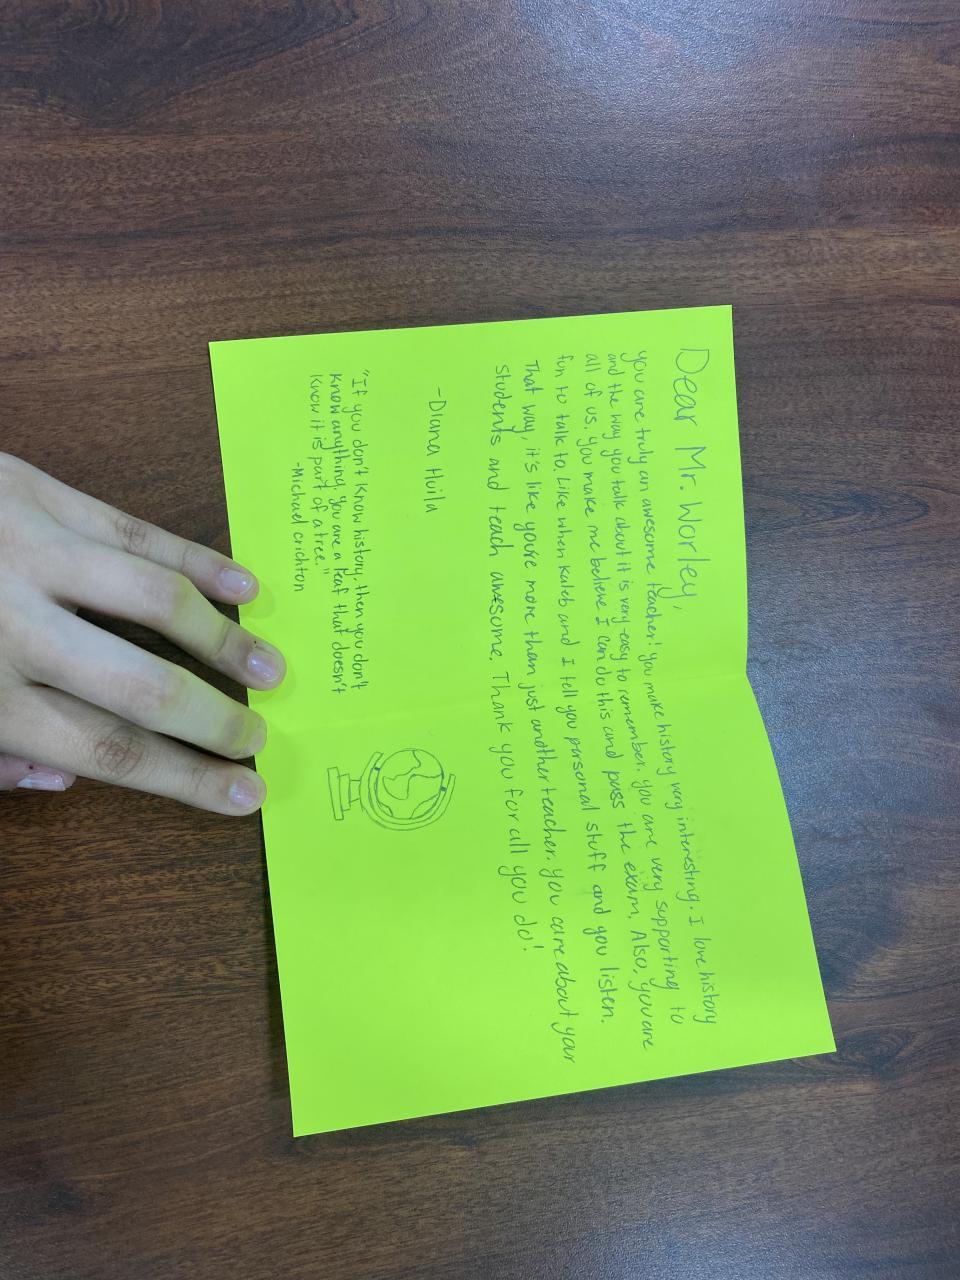 Dear Mr. Worley,
you are truly an awesome teacher! you make history very interesting. I love history
and the way you talk about it is very easy to remember. you are very supporting to
all of us. you make me believe I can do this and pass the exam. Also, you are
fun to talk to. Like when Kaleb and I tell you personal stuff and you listen.
That way, it's like you're more than just another teacher. you care about your
students and teach awesome. Thank you for all you do!
-Diana Huila
"If you don't know history, then you don't
know anything, you are a leaf that doesn't
know it is part of a tree."
-Michael crichton